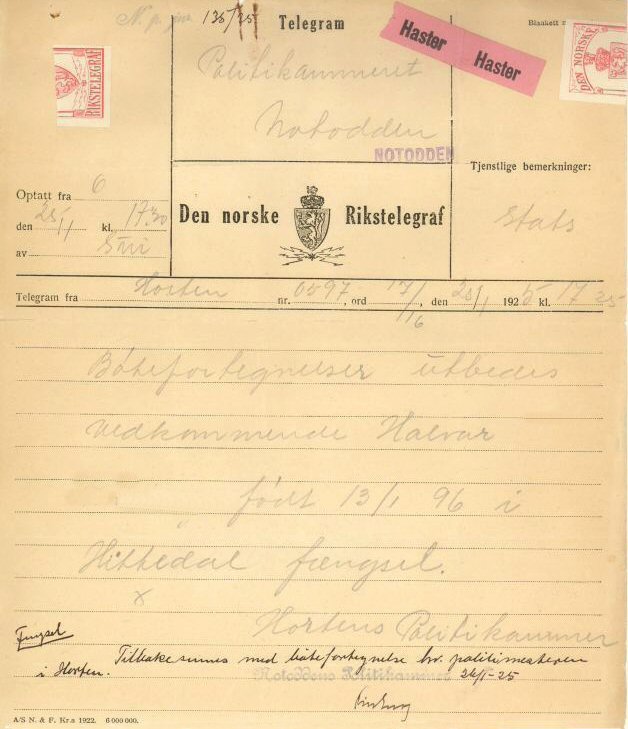 N. p. 135/25
Telegram
Blankett
Haster Haster
DEN NORSKE
RIKSTELEGRAF
Politikammeret
Notodden
NOTODDEN
Tjenstlige bemerkninger:
Stats
Optatt fra 6
den 25/1 kl. 1730
av
Den norske Rikstelegraf
Telegram fra Horten nr. 0597, ord 17/16, den 25/1 1925 kl. 17 25
Bøtefortegnelser utbedes
vedkommende Halvar
født 13/1 96 i
Hittedal fængsel.
x
Hortens Politikammer
Fengsel
Tilbakesendes med bøtefortegnelse hr. politimesteren
i Horten.
Notoddens Politikammer 26/1-25
A/S N. & F. Kr.a 1922. 6 000 000.